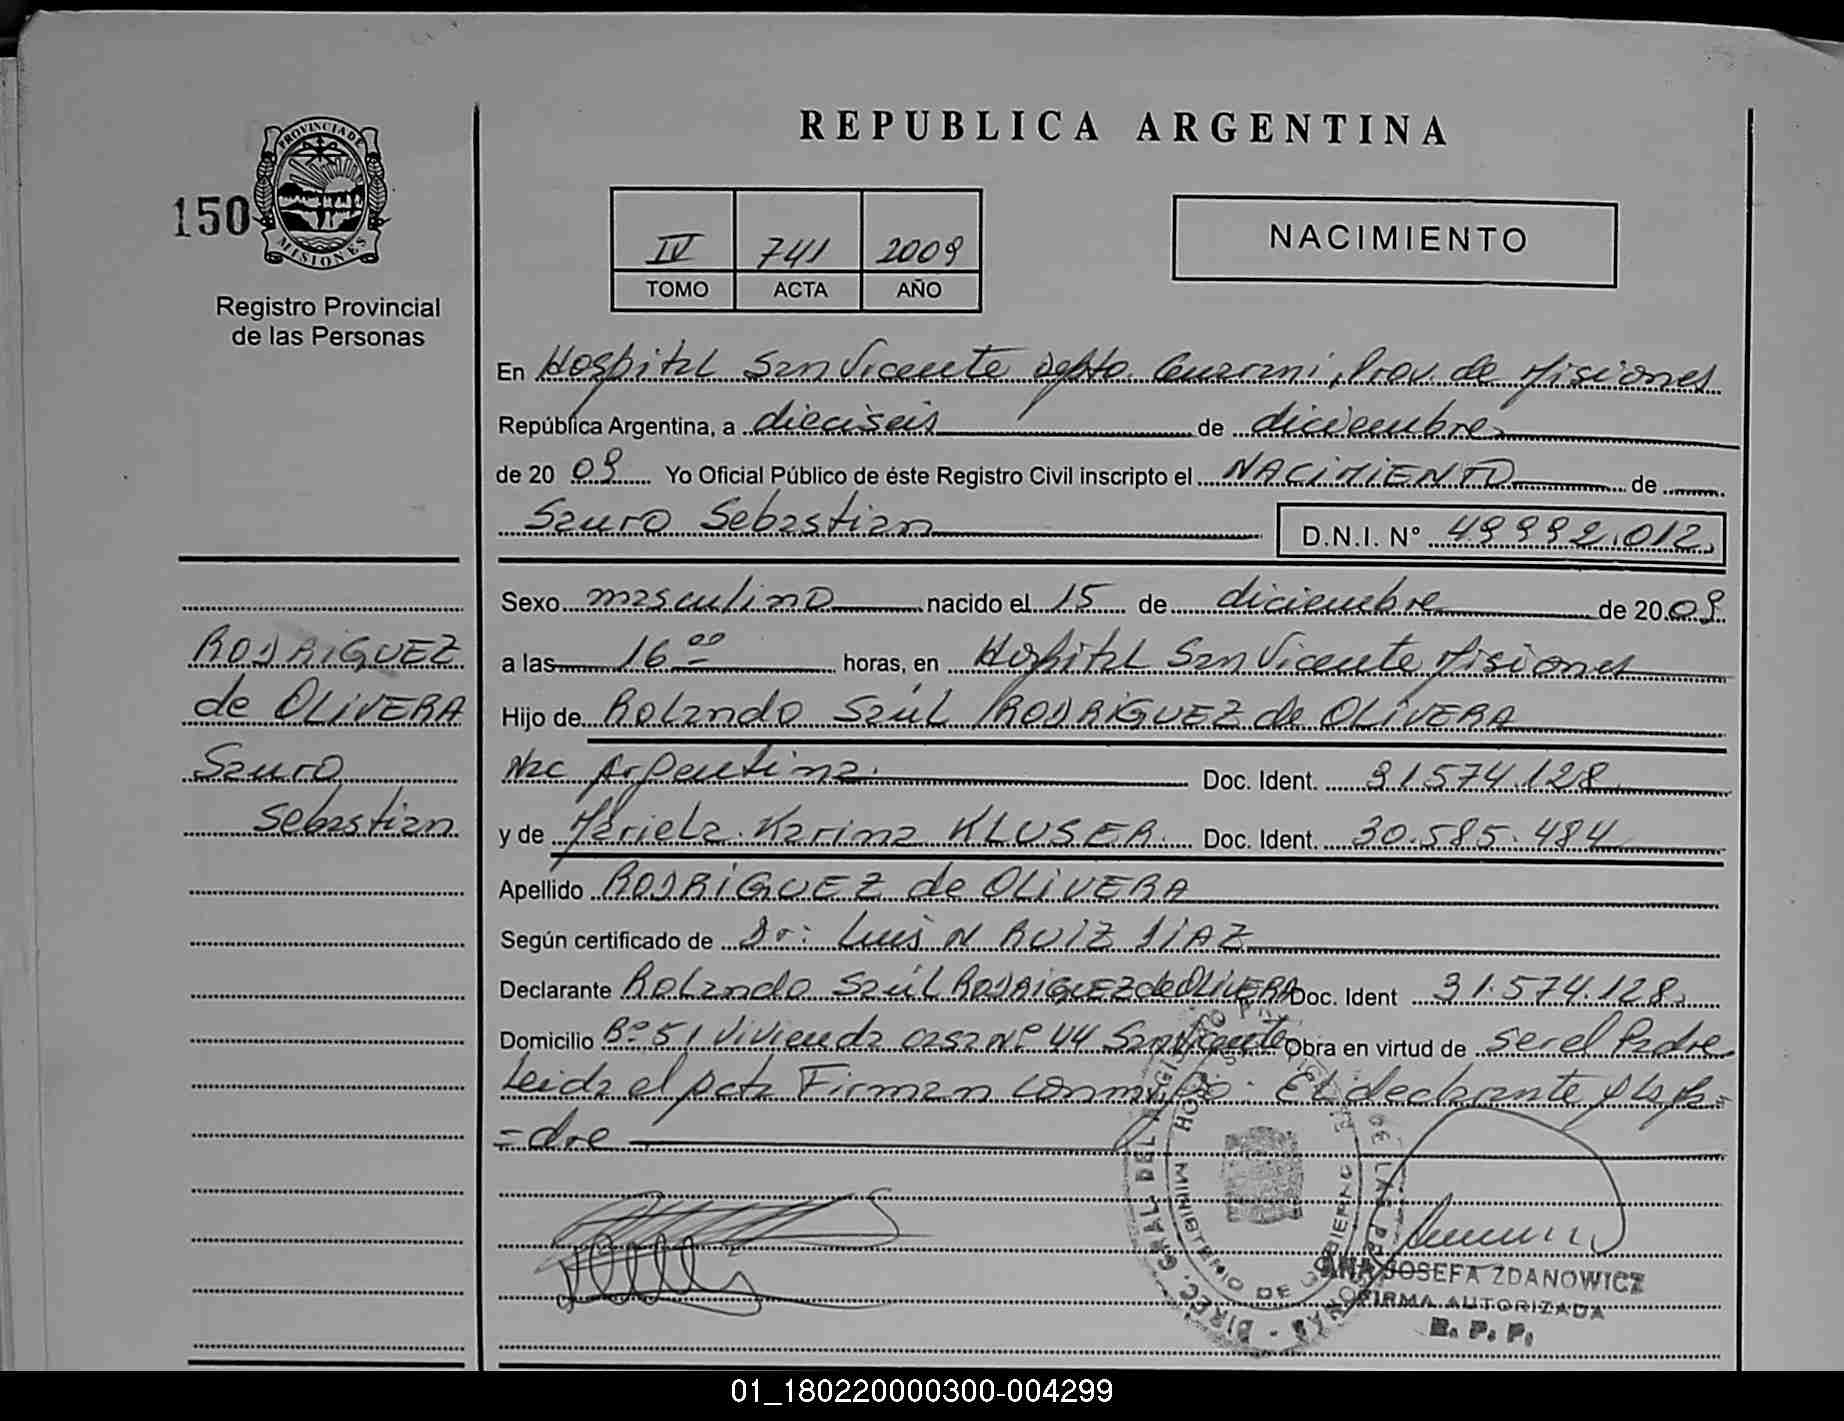 REPUBLICA ARGENTINA
PROVINCIA DE
MISIONES
150
Registro Provincial
de las Personas
IV 741 2009
TOMO ACTA AÑO
NACIMIENTO
En Hospital San Vicente depto. Guarani, Prov. de Misiones
República Argentina, a dieciseis de diciembre
de 20 09 Yo Oficial Público de éste Registro Civil inscripto el NACIMIENTO de
Sauro Sebastian D.N.I. N° 49992.012
Sexo masculino nacido el 15 de diciembre de 20 09
a las 16 00 horas, en Hospital San Vicente Misiones
Hijo de Rolando Saúl RODRIGUEZ de OLIVERA
Nac Argentina. Doc. Ident. 31574.128
y de Mariela Karina KLUSER Doc. Ident. 30.585.484
Apellido RODRIGUEZ de OLIVERA
Según certificado de Dr: Luis N RUIZ DIAZ
Declarante Rolando Saúl RODRIGUEZ de OLIVERA Doc. Ident 31.574.128
Domicilio B° 51 Vivienda casa N° 44 San Vicente Obra en virtud de ser el Padre
Leida el acta Firman conmigo: El declarante y la ma=
=dre
RODRIGUEZ
de OLIVERA
Sauro
Sebastian
DIREC. GRAL. DEL REGISTRO
MINISTERIO DE GOBIERNO
ANA JOSEFA ZDANOWICZ
FIRMA AUTORIZADA
R. P. P.
01_180220000300-004299